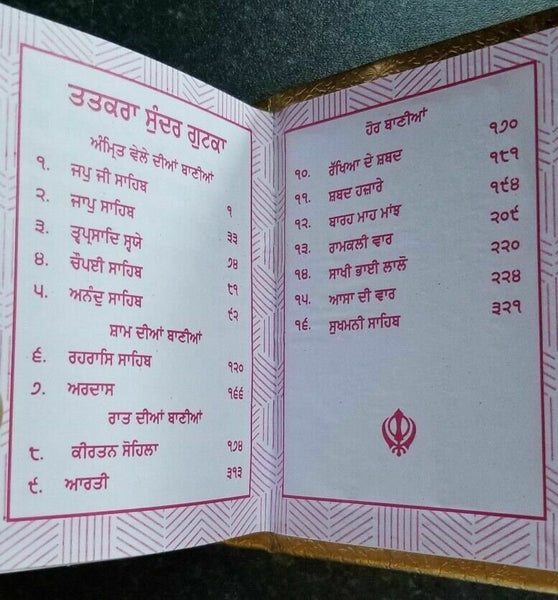 ਤਤਕਰਾ ਸੁੰਦਰ ਗੁਟਕਾ
ਅੰਮ੍ਰਿਤ ਵੇਲੇ ਦੀਆਂ ਬਾਣੀਆਂ
੧. ਜਪੁ ਜੀ ਸਾਹਿਬ ੧
੨. ਜਾਪੁ ਸਾਹਿਬ ੩੩
੩. ਤ੍ਵਪ੍ਰਸਾਦਿ ਸ੍ਵਯੇ ੭੪
੪. ਚੌਪਈ ਸਾਹਿਬ ੮੧
੫. ਅਨੰਦੁ ਸਾਹਿਬ ੯੨
ਸ਼ਾਮ ਦੀਆਂ ਬਾਣੀਆਂ
੬. ਰਹਰਾਸਿ ਸਾਹਿਬ ੧੨੦
੭. ਅਰਦਾਸ ੧੬੬
ਰਾਤ ਦੀਆਂ ਬਾਣੀਆਂ
੮. ਕੀਰਤਨ ਸੋਹਿਲਾ ੧੭੪
੯. ਆਰਤੀ ੩੧੩
ਹੋਰ ਬਾਣੀਆਂ
੧੦. ਰੱਖਿਆ ਦੇ ਸ਼ਬਦ ੧੭੦
੧੧. ਸ਼ਬਦ ਹਜ਼ਾਰੇ ੧੮੧
੧੨. ਬਾਰਹ ਮਾਹ ਮਾਂਝ ੧੯੪
੧੩. ਰਾਮਕਲੀ ਵਾਰ ੨੦੯
੧੪. ਸਾਖੀ ਭਾਈ ਲਾਲੋ ੨੨੦
੧੫. ਆਸਾ ਦੀ ਵਾਰ ੨੨੪
੧੬. ਸੁਖਮਨੀ ਸਾਹਿਬ ੩੨੧